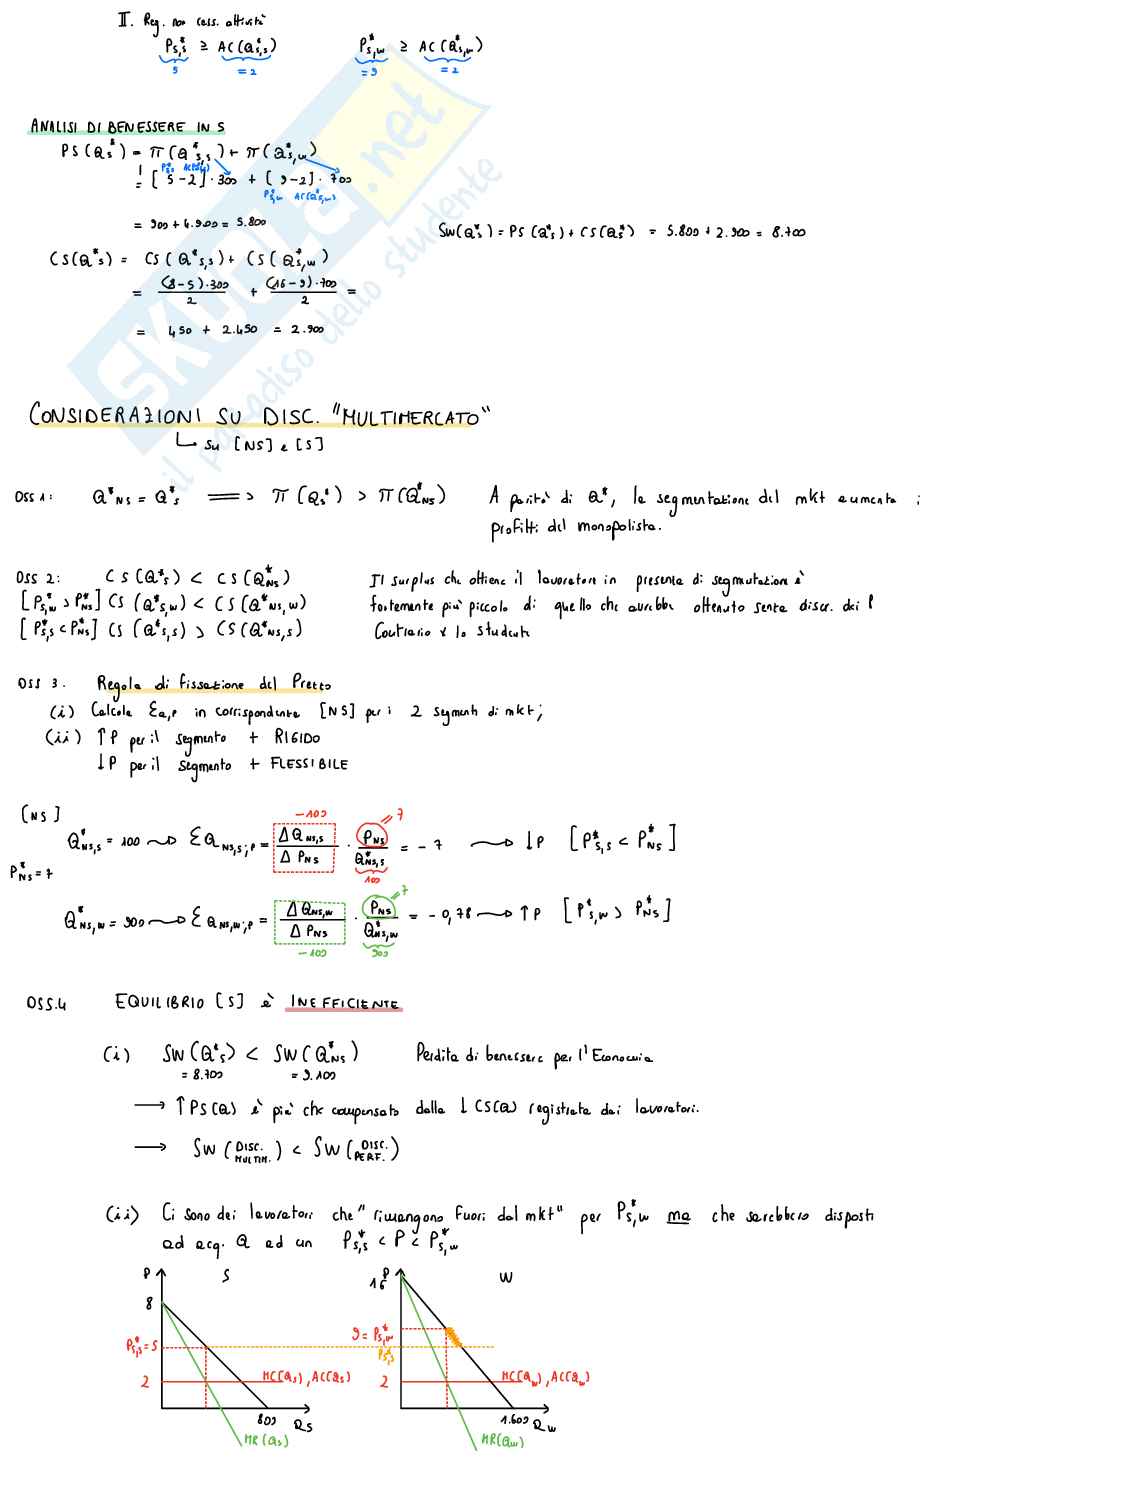 II. Reg. non cess. attività
P*S,S ≥ AC(Q*S,S)   P*S,W ≥ AC(Q*S,W)
5   =2   =9   =2
ANALISI DI BENESSERE IN S
PS(Q*S) = π(Q*S,S) + π(Q*S,W)
P*S,S AC(Q*S,S)
= [5-2]·300 + [9-2]·700
P*S,W AC(Q*S,W)
= 900 + 4.900 = 5.800
SW(Q*S) = PS(Q*S) + CS(Q*S) = 5.800 + 2.900 = 8.700
CS(Q*S) = CS(Q*S,S) + CS(Q*S,W)
= (8-5)·300/2 + (16-9)·700/2 =
= 450 + 2.450 = 2.900
SKUOLA.net
il paradiso dello studente
CONSIDERAZIONI SU DISC. "MULTIMERCATO"
↳ su [NS] e [S]
OSS 1: Q*NS = Q*S ⟹ π(Q*S) > π(Q*NS)   A parità di Q*, la segmentazione del mkt aumenta i
profitti del monopolista.
OSS 2: CS(Q*S) < CS(Q*NS)   Il surplus che ottiene il lavoratore in presenza di segmentazione è
[P*S,W > P*NS] CS(Q*S,W) < CS(Q*NS,W)   fortemente più piccolo di quello che avrebbe ottenuto senza discr. dei P
[P*S,S < P*NS] CS(Q*S,S) > CS(Q*NS,S)   Contrario x lo studente
OSS 3. Regola di fissazione del Prezzo
(i) Calcola εQ,P in corrispondenza [NS] per i 2 segmenti di mkt;
(ii) ↑P per il segmento + RIGIDO
↓P per il segmento + FLESSIBILE
[NS]
-100   7
Q*NS,S = 100 ⇝ εQNS,S;P = ΔQNS,S/ΔPNS · PNS/Q*NS,S = -7 ⇝ ↓P [P*S,S < P*NS]
100
P*NS=7
7
Q*NS,W = 900 ⇝ εQNS,W;P = ΔQNS,W/ΔPNS · PNS/Q*NS,W = -0,78 ⇝ ↑P [P*S,W > P*NS]
-100   900
OSS.4 EQUILIBRIO [S] è INEFFICIENTE
(i) SW(Q*S) < SW(Q*NS)   Perdita di benessere per l'Economia
=8.700   =9.100
→ ↑PS(Q) è più che compensato dalla ↓CS(Q) registrata dai lavoratori.
→ SW(DISC. MULTIM.) < SW(DISC. PERF.)
(ii) Ci sono dei lavoratori che "rimangono fuori dal mkt" per P*S,W ma che sarebbero disposti
ad acq. Q ad un P*S,S < P < P*S,W
P   S   P   W
8   16
P*S,S=5   9=P*S,W
P*S,S
2   MC(QS), AC(QS)   2   MC(QW), AC(QW)
800   QS   1.600   QW
MR(QS)   MR(QW)